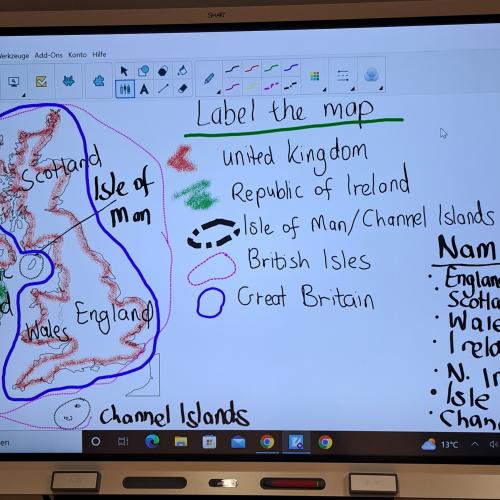 SMART
Werkzeuge Add-Ons Konto Hilfe
Label the map
United Kingdom
Republic of Ireland
Isle of Man/Channel Islands
British Isles
Great Britain
Scotland
Isle of
Man
England
Wales
Channel Islands
Nam
• England
Scotla
• Wale
• Irela
• N. Ir
• Isle
• Chan
en
13°C